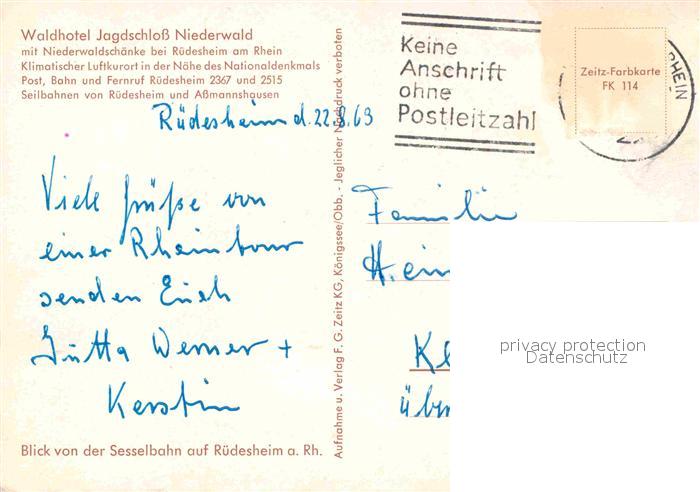 Waldhotel Jagdschloß Niederwald
mit Niederwaldschänke bei Rüdesheim am Rhein
Klimatischer Luftkurort in der Nähe des Nationaldenkmals
Post, Bahn und Fernruf Rüdesheim 2367 und 2515
Seilbahnen von Rüdesheim und Aßmannshausen
Rüdesheim d. 22.8.69
Viele Grüße von
einer Rheintour
senden Euch
Jutta Werner +
Kerstin
Blick von der Sesselbahn auf Rüdesheim a. Rh.
Aufnahme u. Verlag F. G. Zeitz KG, Königssee/Obb. - Jeglicher Nachdruck verboten
Keine
Anschrift
ohne
Postleitzahl
Zeitz-Farbkarte
FK 114
RHEIN
Familie
Hein
Kl
über
privacy protection
Datenschutz